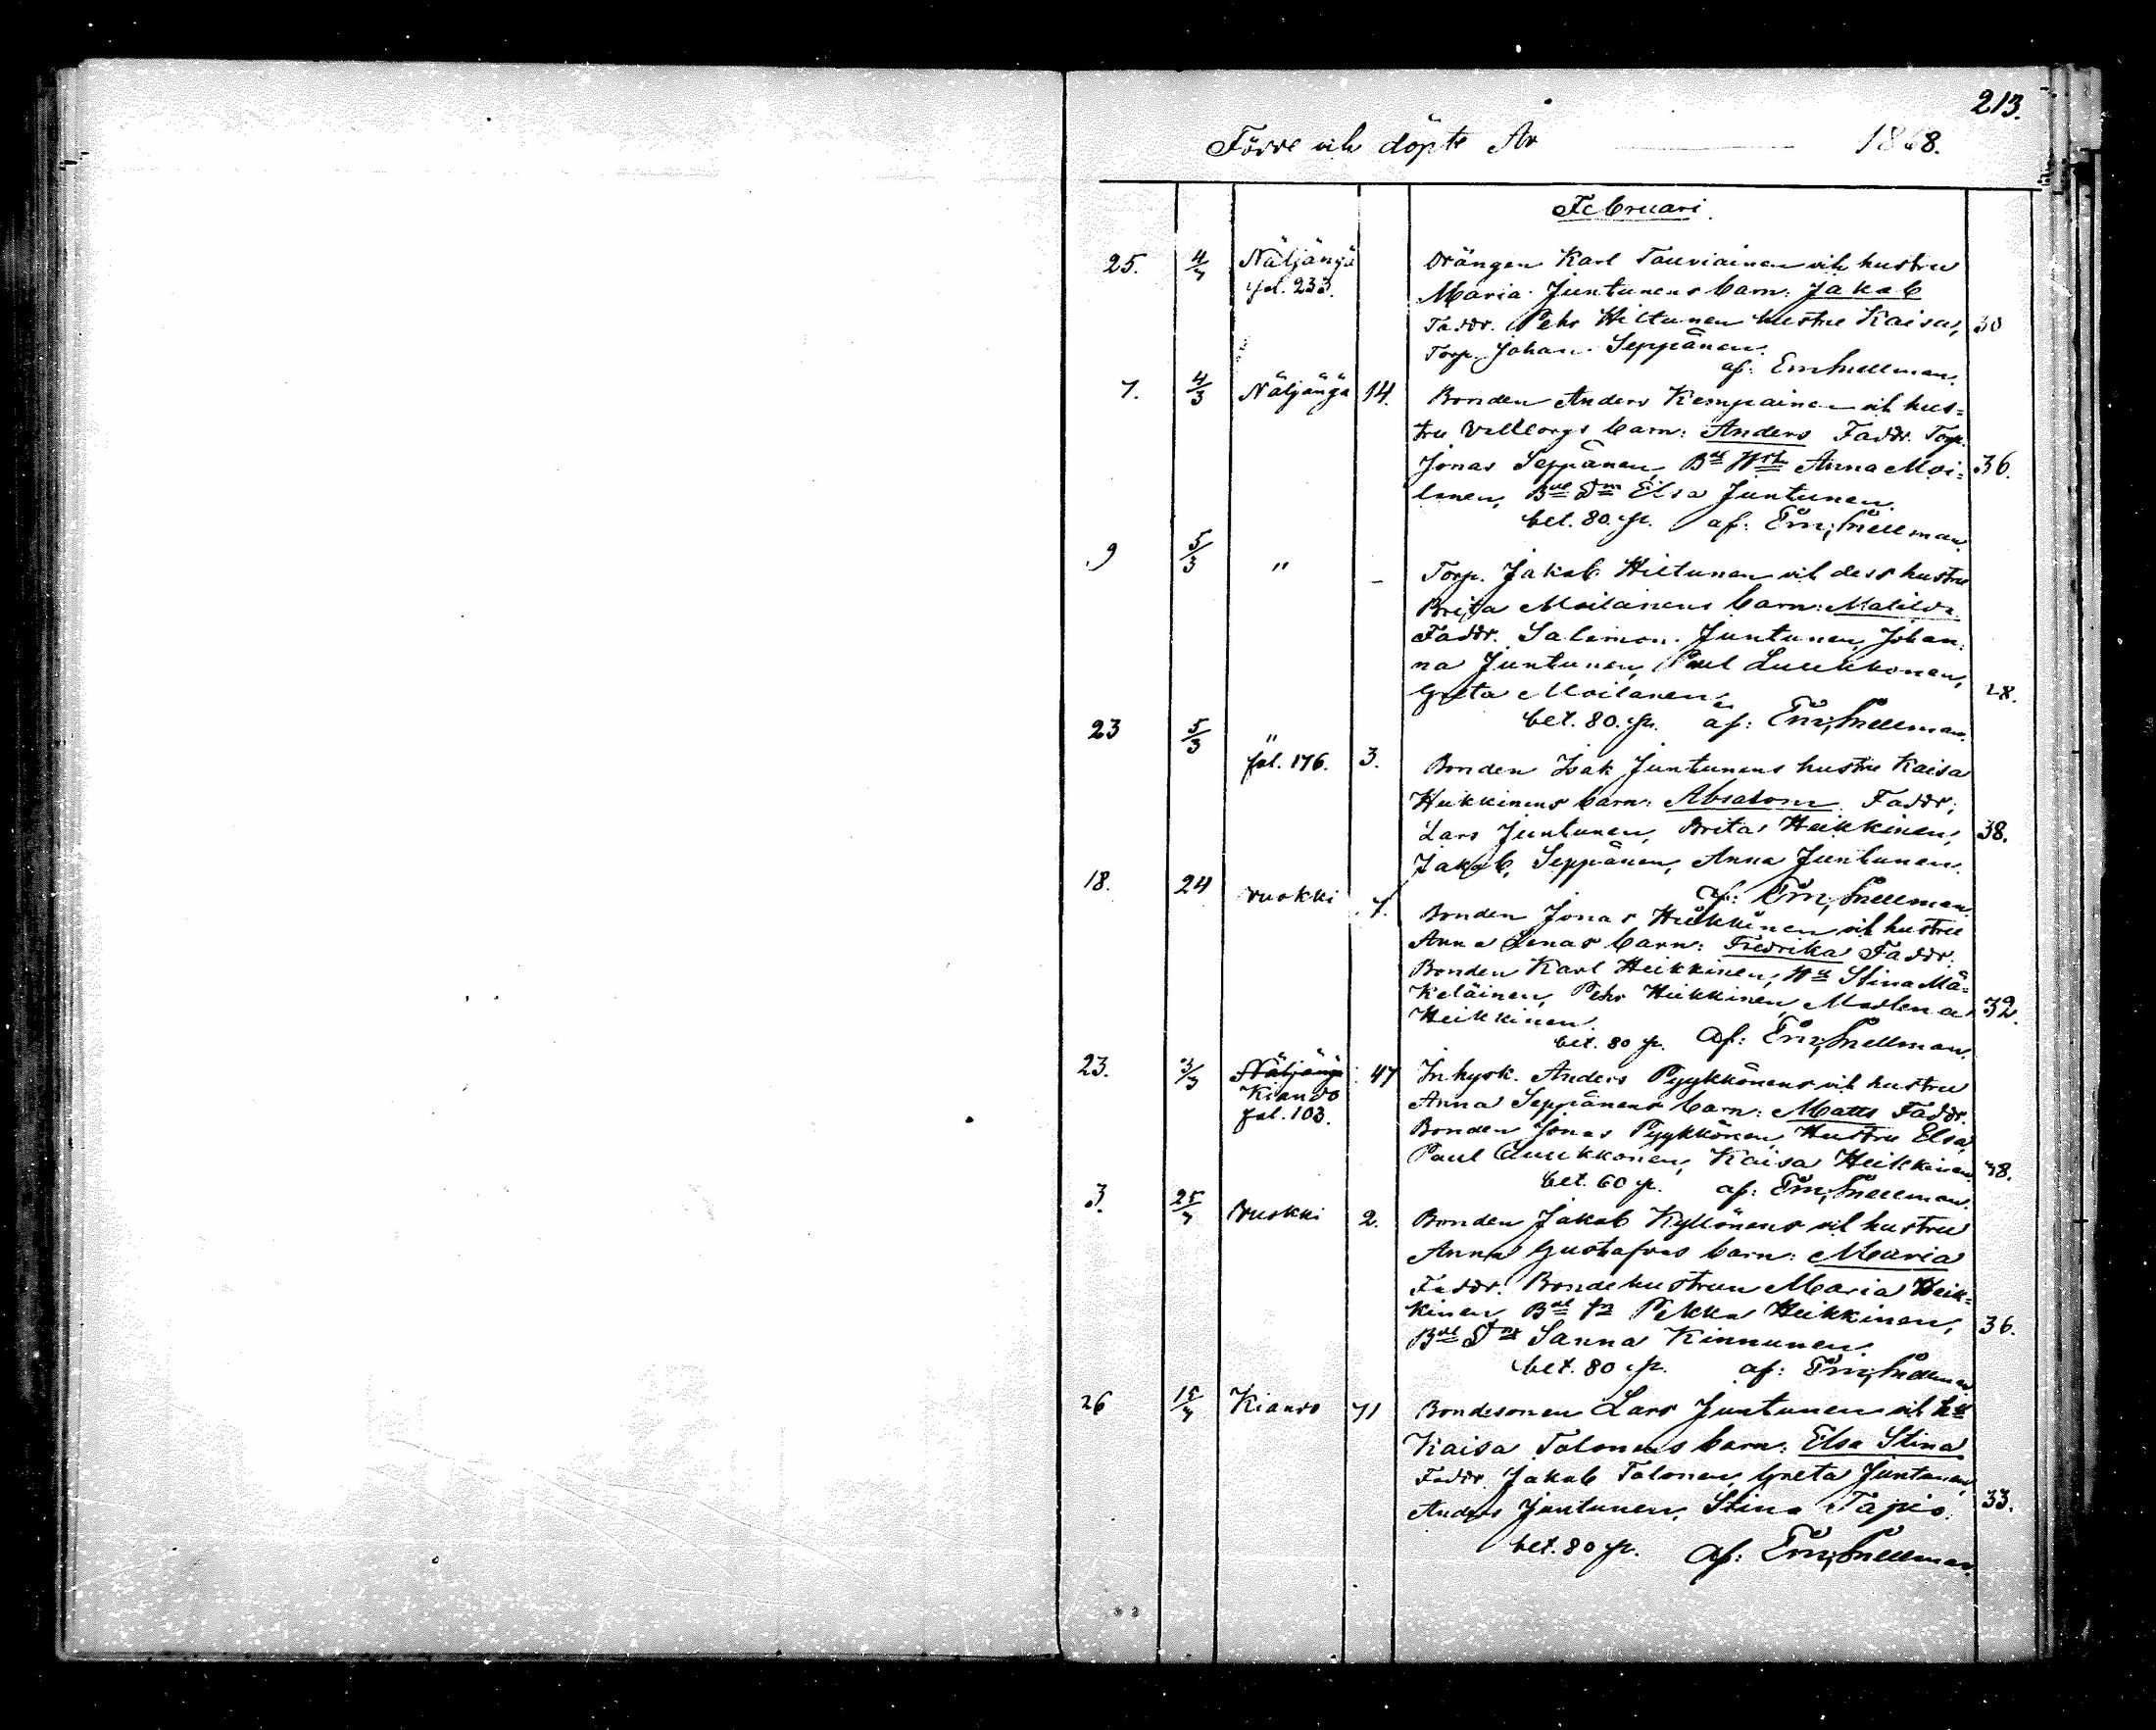 213.
Förde och döpte År 1868.
Februari.
25. 4/3 Näljängä fol. 233.
Drängen Karl Tauriainen och hustru
Maria Juntunens barn: Jakob
Faddr. Pehr Hiltunen hustru Kaisa, 30
Torp. Johan Seppänen.
af: Em Snellman.
7. 4/3 Näljängä 14. Bonden Anders Kempainen och hus=
tru Valborgs barn: Anders Faddr. Torp.
Jonas Seppänen, Bde Hst Anna Moi= 36.
lanen, Bde Dr Elsa Juntunen.
bet. 80 p. af: Em. Snellman.
9 5/3 " - Torp. Jakob Hiltunen och dess hustru
Brita Moilanens barn: Matilda.
Faddr. Salomon Juntunen, Johan=
na Juntunen, Paul Luukkonen,
Greta Moilanen. 28.
bet. 80. p. af: Em. Snellman.
23 5/3 " fol. 176. 3. Bonden Isak Juntunens hustru Kaisa
Heikkinens barn: Absalom Faddr;
Lars Juntunen, Brita Heikkinen, 38.
Jakob Seppänen, Anna Juntunen.
af: Em. Snellman.
18. 24 Vuokki 7. Bonden Jonas Heikkinen och hustru
Anna Lenas barn: Fredrika Faddr.
Bonden Karl Heikkinen, Hu Stina Mä=
keläinen, Pehr Heikkinen, Madlena 32.
Heikkinen.
bet. 80 p. Af: Em. Snellman.
23. 3/3 Näljängä Kiando fol. 103. 47 Inhysk. Anders Pyykkönens och hustru
Anna Seppänens barn: Matts Faddr.
Bonden Jonas Pyykkönen, Hustru Elsa,
Paul Luukkonen, Kaisa Heikkinen. 38.
bet. 60 p. af: Em. Snellman.
3. 25/3 Vuokki 2. Bonden Jakob Kyllönens och hustru
Anna Gustafvas barn: Maria
Faddr. Bondehustrun Maria Heik=
kinen, Bde Sn Pekka Heikkinen, 36.
Bde Dr Sanna Kinnunen.
bet. 80 p. af: Em. Snellman
26 15/3 Kiando 71 Bondesonen Lars Juntunen och hu
Kaisa Tolonens barn: Elsa Stina
Faddr. Jakob Tolonen, Greta Juntunen,
Anders Juntunen, Stina Tapio. 33.
bet. 80 p. Af: Em. Snellman.